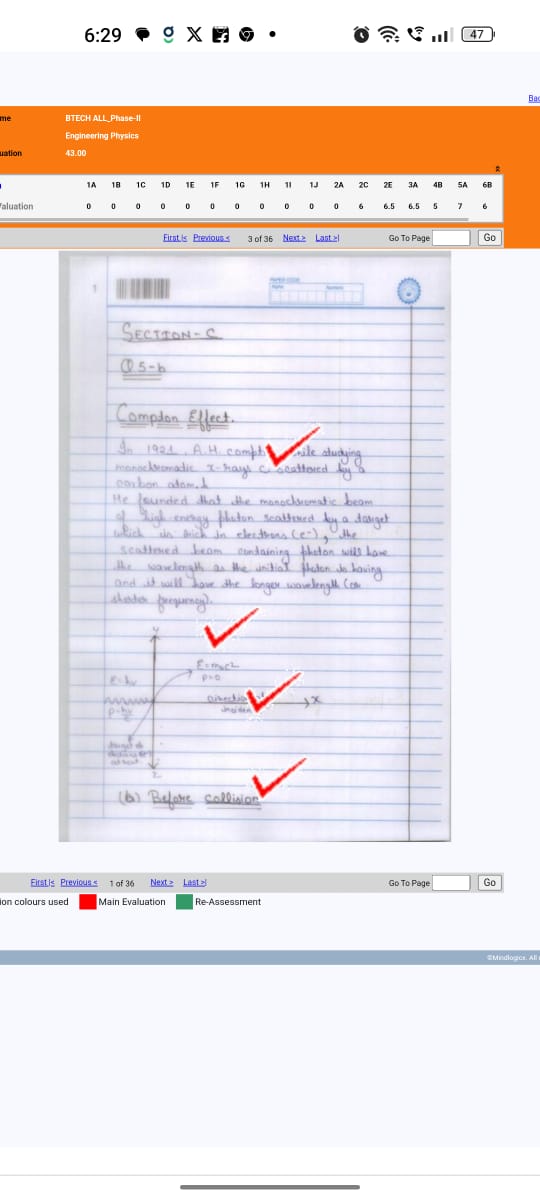 6:29
47
Bac
me
BTECH ALL_Phase-II
Engineering Physics
uation
43.00
1A 1B 1C 1D 1E 1F 1G 1H 1I 1J 2A 2C 2E 3A 4B 5A 6B
aluation 0 0 0 0 0 0 0 0 0 0 0 6 6.5 6.5 5 7 6
First |< Previous < 3 of 36 Next > Last >| Go To Page Go
1
SECTION-C
Q5-b
Compton Effect.
In 1921, A.H. compt while studying
monochromatic x-rays scattered by a
carbon atom.
He founded that the monochromatic beam
of high energy photon scattered by a target
which is rich in electrons (e-), the
scattered beam containing photon will have
the wavelength as the initial photon is having
and it will have the longer wavelength (or
shorter frequency).
Y
E=m₀c2
p=0
E=hν
X
Z
(b) Before collision
First |< Previous < 1 of 36 Next > Last >| Go To Page Go
ion colours used Main Evaluation Re-Assessment
©Mindlogicx. All